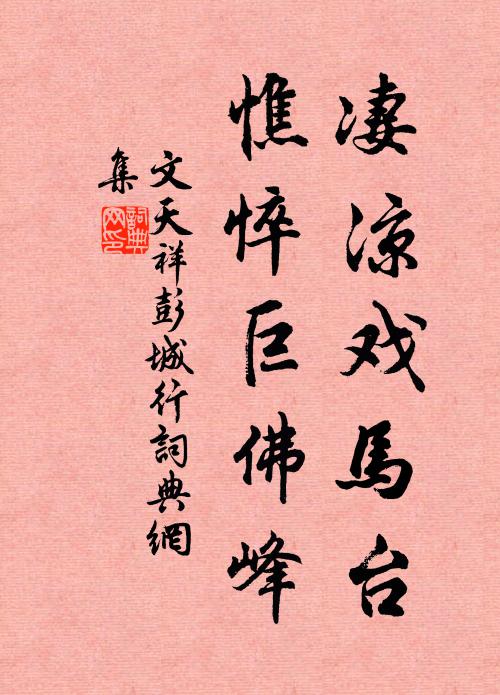 凄凉戏馬台
憔悴巨佛峰
文天祥彭城行詞典網
集
詞典网印